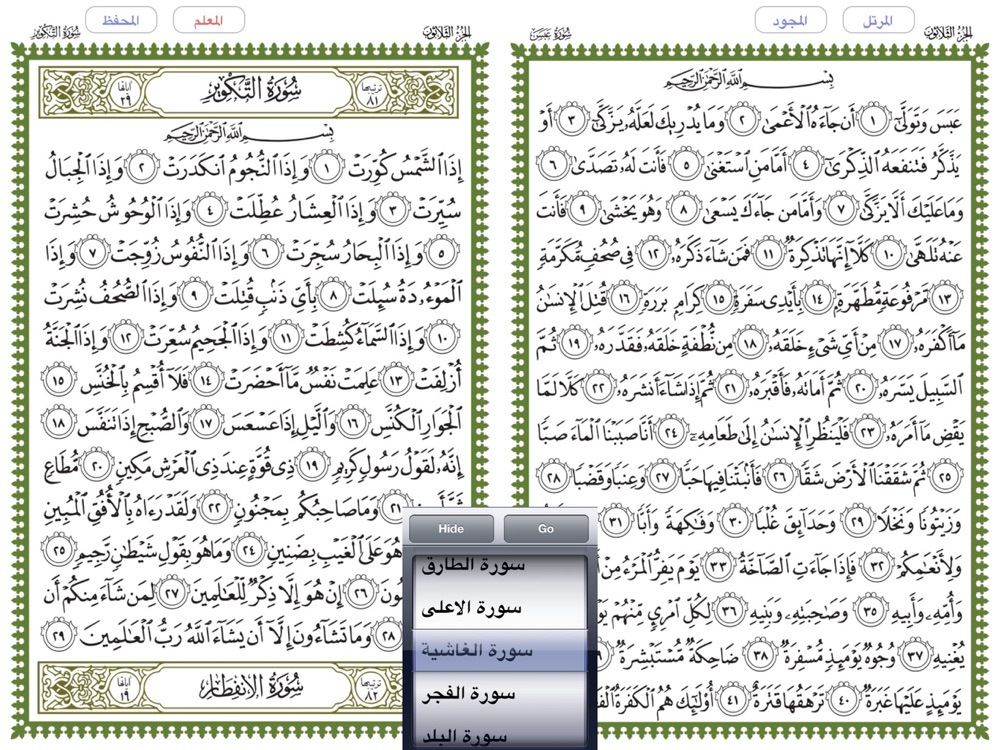 المرتل
المجود
المعلم
المحفظ
الجزء الثلاثون
سورة عبس
بِسْمِ اللَّهِ الرَّحْمَٰنِ الرَّحِيمِ
عَبَسَ وَتَوَلَّىٰ ١ أَن جَاءَهُ الْأَعْمَىٰ ٢ وَمَا يُدْرِيكَ لَعَلَّهُ يَزَّكَّىٰ ٣ أَوْ
يَذَّكَّرُ فَتَنفَعَهُ الذِّكْرَىٰ ٤ أَمَّا مَنِ اسْتَغْنَىٰ ٥ فَأَنتَ لَهُ تَصَدَّىٰ ٦
وَمَا عَلَيْكَ أَلَّا يَزَّكَّىٰ ٧ وَأَمَّا مَن جَاءَكَ يَسْعَىٰ ٨ وَهُوَ يَخْشَىٰ ٩ فَأَنتَ
عَنْهُ تَلَهَّىٰ ١٠ كَلَّا إِنَّهَا تَذْكِرَةٌ ١١ فَمَن شَاءَ ذَكَرَهُ ١٢ فِي صُحُفٍ مُّكَرَّمَةٍ
١٣ مَّرْفُوعَةٍ مُّطَهَّرَةٍ ١٤ بِأَيْدِي سَفَرَةٍ ١٥ كِرَامٍ بَرَرَةٍ ١٦ قُتِلَ الْإِنسَانُ
مَا أَكْفَرَهُ ١٧ مِنْ أَيِّ شَيْءٍ خَلَقَهُ ١٨ مِن نُّطْفَةٍ خَلَقَهُ فَقَدَّرَهُ ١٩ ثُمَّ
السَّبِيلَ يَسَّرَهُ ٢٠ ثُمَّ أَمَاتَهُ فَأَقْبَرَهُ ٢١ ثُمَّ إِذَا شَاءَ أَنشَرَهُ ٢٢ كَلَّا لَمَّا
يَقْضِ مَا أَمَرَهُ ٢٣ فَلْيَنظُرِ الْإِنسَانُ إِلَىٰ طَعَامِهِ ٢٤ أَنَّا صَبَبْنَا الْمَاءَ صَبًّا
٢٥ ثُمَّ شَقَقْنَا الْأَرْضَ شَقًّا ٢٦ فَأَنبَتْنَا فِيهَا حَبًّا ٢٧ وَعِنَبًا وَقَضْبًا ٢٨
وَزَيْتُونًا وَنَخْلًا ٢٩ وَحَدَائِقَ غُلْبًا ٣٠ وَفَاكِهَةً وَأَبًّا ٣١
وَلِأَنْعَامِكُمْ ٣٢ فَإِذَا جَاءَتِ الصَّاخَّةُ ٣٣ يَوْمَ يَفِرُّ الْمَرْءُ مِنْ
وَأُمِّهِ وَأَبِيهِ ٣٥ وَصَاحِبَتِهِ وَبَنِيهِ ٣٦ لِكُلِّ امْرِئٍ مِّنْهُمْ
يُغْنِيهِ ٣٧ وُجُوهٌ يَوْمَئِذٍ مُّسْفِرَةٌ ٣٨ ضَاحِكَةٌ مُّسْتَبْشِرَةٌ
يَوْمَئِذٍ عَلَيْهَا غَبَرَةٌ ٤٠ تَرْهَقُهَا قَتَرَةٌ ٤١ أُولَٰئِكَ هُمُ الْكَفَرَةُ
الجزء الثلاثون
سورة التكوير
ترتيبها ٨١
سُورَةُ التَّكْوِيرِ
آياتها ٢٩
بِسْمِ اللَّهِ الرَّحْمَٰنِ الرَّحِيمِ
إِذَا الشَّمْسُ كُوِّرَتْ ١ وَإِذَا النُّجُومُ انكَدَرَتْ ٢ وَإِذَا الْجِبَالُ
سُيِّرَتْ ٣ وَإِذَا الْعِشَارُ عُطِّلَتْ ٤ وَإِذَا الْوُحُوشُ حُشِرَتْ
٥ وَإِذَا الْبِحَارُ سُجِّرَتْ ٦ وَإِذَا النُّفُوسُ زُوِّجَتْ ٧ وَإِذَا
الْمَوْءُودَةُ سُئِلَتْ ٨ بِأَيِّ ذَنبٍ قُتِلَتْ ٩ وَإِذَا الصُّحُفُ نُشِرَتْ
١٠ وَإِذَا السَّمَاءُ كُشِطَتْ ١١ وَإِذَا الْجَحِيمُ سُعِّرَتْ ١٢ وَإِذَا الْجَنَّةُ
أُزْلِفَتْ ١٣ عَلِمَتْ نَفْسٌ مَّا أَحْضَرَتْ ١٤ فَلَا أُقْسِمُ بِالْخُنَّسِ ١٥
الْجَوَارِ الْكُنَّسِ ١٦ وَاللَّيْلِ إِذَا عَسْعَسَ ١٧ وَالصُّبْحِ إِذَا تَنَفَّسَ ١٨
إِنَّهُ لَقَوْلُ رَسُولٍ كَرِيمٍ ١٩ ذِي قُوَّةٍ عِندَ ذِي الْعَرْشِ مَكِينٍ ٢٠ مُّطَاعٍ
ثَمَّ ٢١ وَمَا صَاحِبُكُم بِمَجْنُونٍ ٢٢ وَلَقَدْ رَآهُ بِالْأُفُقِ الْمُبِينِ
هُوَ عَلَى الْغَيْبِ بِضَنِينٍ ٢٤ وَمَا هُوَ بِقَوْلِ شَيْطَانٍ رَّجِيمٍ ٢٥
٢٦ إِنْ هُوَ إِلَّا ذِكْرٌ لِّلْعَالَمِينَ ٢٧ لِمَن شَاءَ مِنكُمْ أَن
٢٨ وَمَا تَشَاءُونَ إِلَّا أَن يَشَاءَ اللَّهُ رَبُّ الْعَالَمِينَ ٢٩
ترتيبها ٨٢
سُورَةُ الِانفِطَارِ
آياتها ١٩
Hide
Go
سورة الطارق
سورة الاعلى
سورة الغاشية
سورة الفجر
سورة البلد